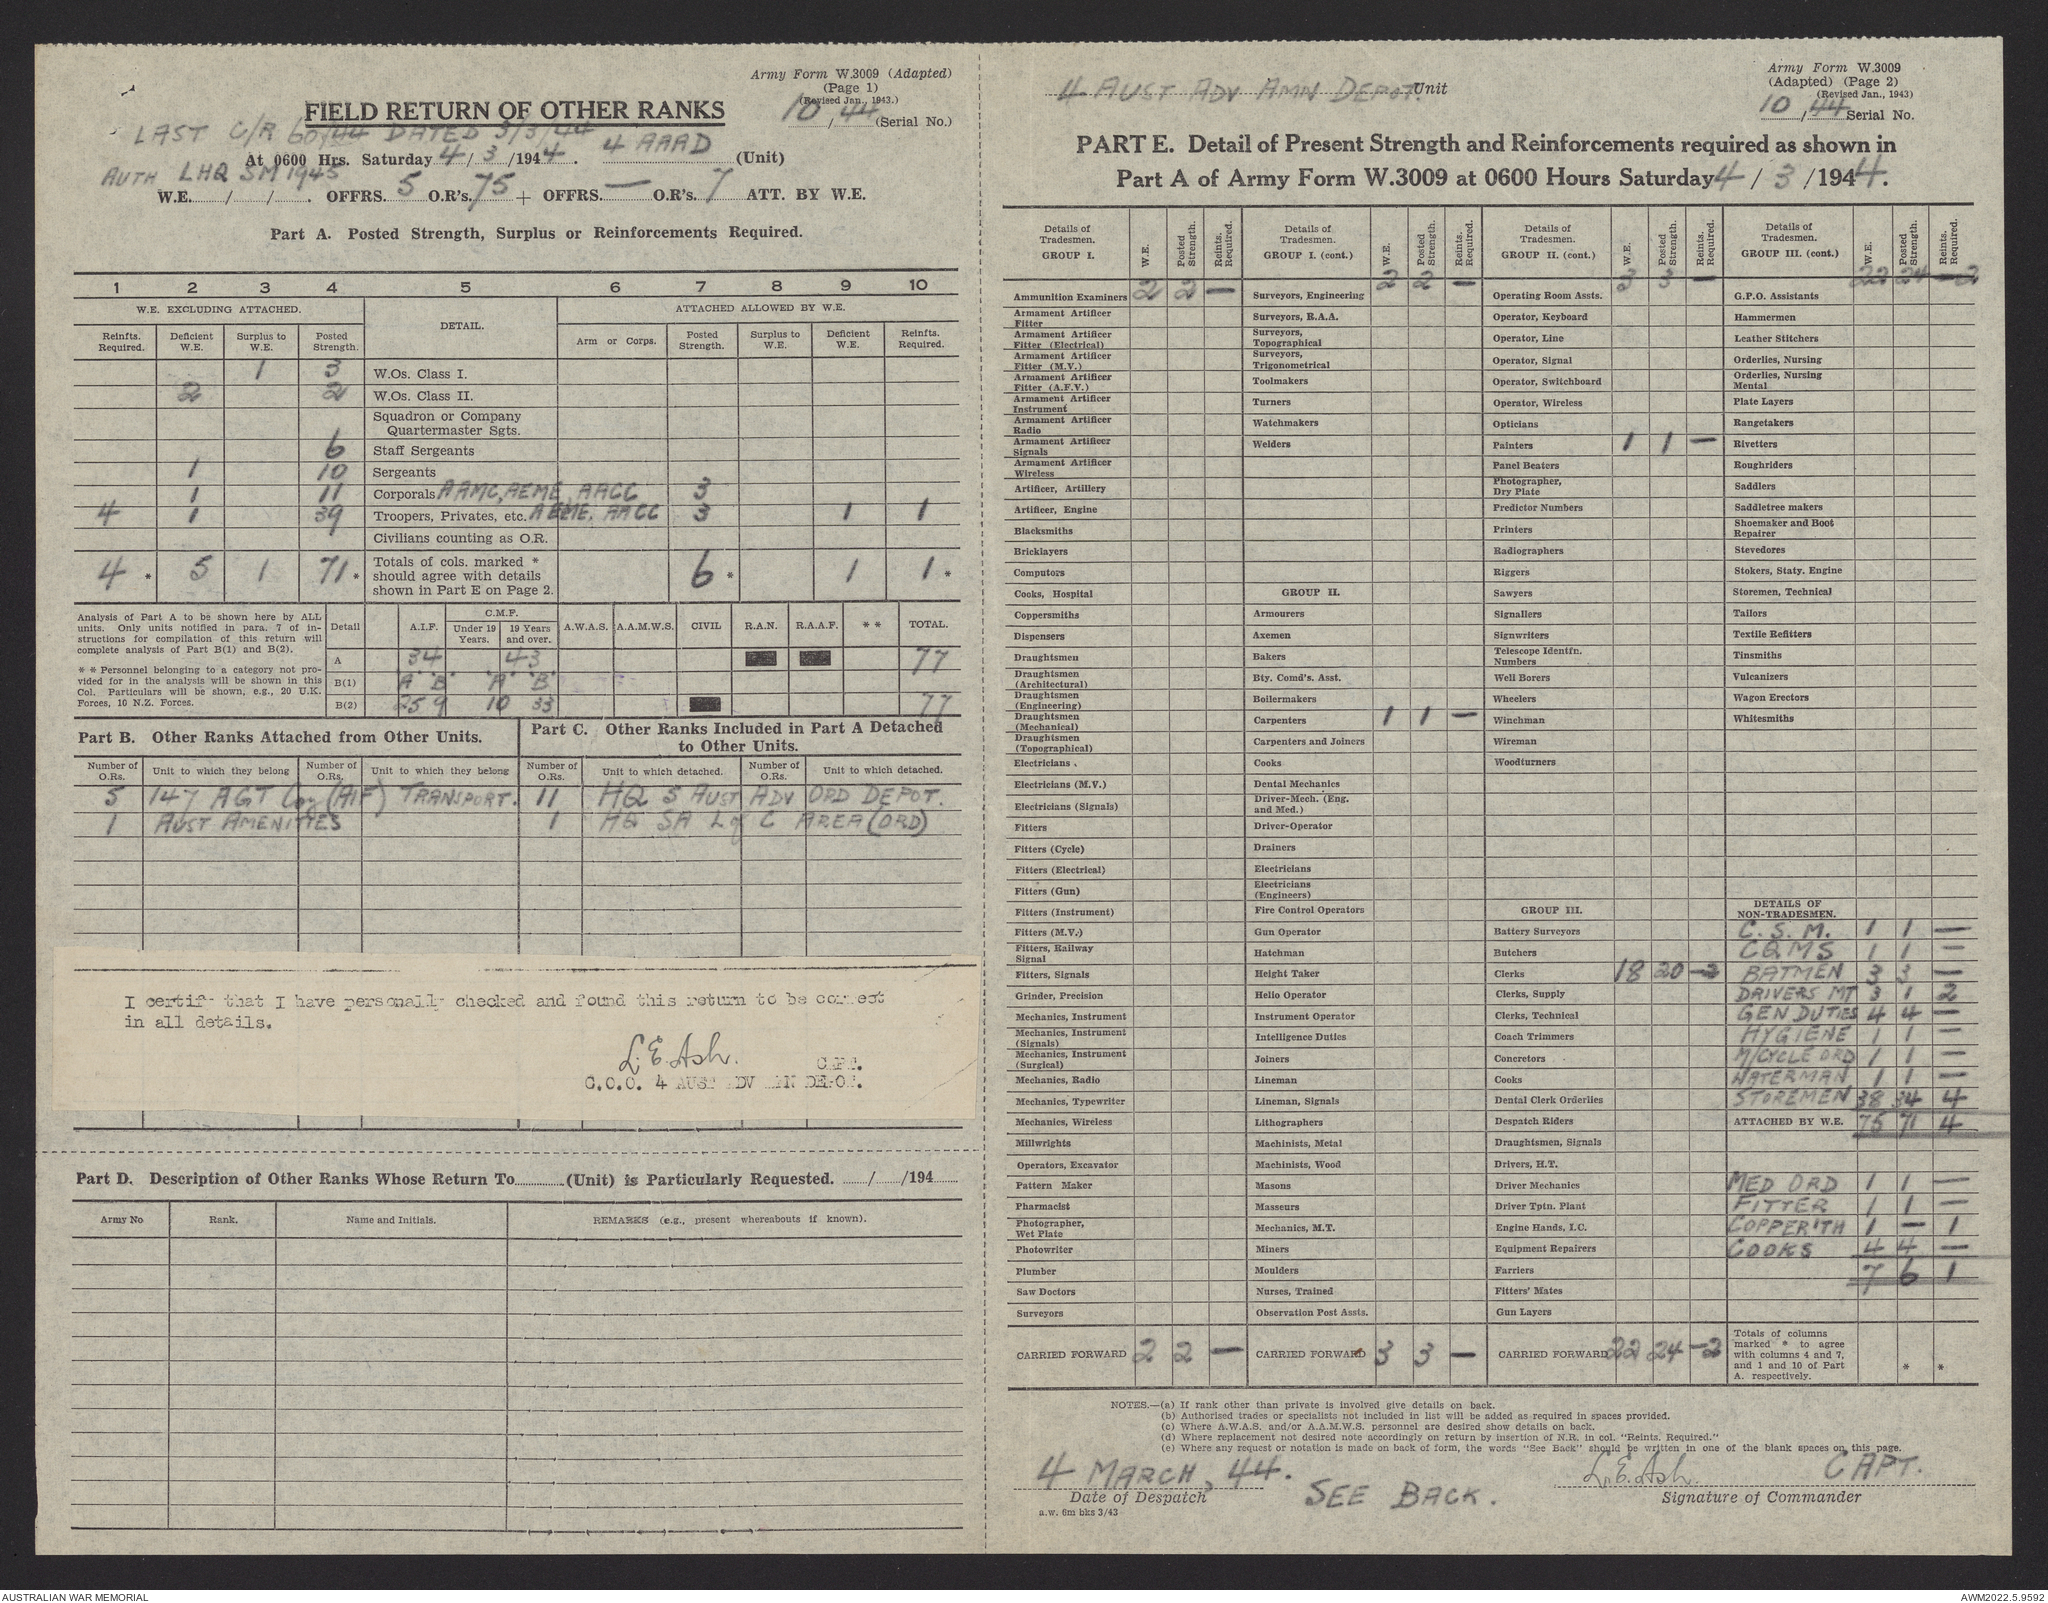 Army Form W.3009 (Adapted)
(Page 1)
(Revised Jan., 1943.)
10/44 (Serial No.)
FIELD RETURN OF OTHER RANKS
LAST C/R 60/44 DATED 3/3/44
At 0600 Hrs. Saturday 4/3/1944. 4 AAAD (Unit)
AUTH LHQ SM 1945
W.E. / / . OFFRS. 5 O.R's. 75 + OFFRS. — O.R's. 7 ATT. BY W.E.
Part A. Posted Strength, Surplus or Reinforcements Required.
1 2 3 4 5 6 7 8 9 10
W.E. EXCLUDING ATTACHED. DETAIL. ATTACHED ALLOWED BY W.E.
Reinfts. Required. Deficient W.E. Surplus to W.E. Posted Strength. Arm or Corps. Posted Strength. Surplus to W.E. Deficient W.E. Reinfts. Required.
1 3 W.Os. Class I.
2 2 W.Os. Class II.
Squadron or Company
Quartermaster Sgts.
6 Staff Sergeants
1 10 Sergeants
1 11 Corporals AAMC, AEME, AACC 3
4 1 39 Troopers, Privates, etc. AEME, AACC 3 1 1
Civilians counting as O.R.
4 * 5 1 71 * Totals of cols. marked * should agree with details shown in Part E on Page 2. 6 * 1 1 *
Analysis of Part A to be shown here by ALL units. Only units notified in para. 7 of instructions for compilation of this return will complete analysis of Part B(1) and B(2).
* * Personnel belonging to a category not provided for in the analysis will be shown in this Col. Particulars will be shown, e.g., 20 U.K. Forces, 10 N.Z. Forces.
Detail A.I.F. C.M.F. Under 19 Years. 19 Years and over. A.W.A.S. A.A.M.W.S. CIVIL R.A.N. R.A.A.F. * * TOTAL.
A 34 43 77
B(1) 'A' 'B' 'A' 'B'
B(2) 25 9 10 33 77
Part B. Other Ranks Attached from Other Units.
Number of O.Rs. Unit to which they belong Number of O.Rs. Unit to which they belong
5 147 AGT Coy (AIF) TRANSPORT.
1 AUST AMENITIES
Part C. Other Ranks Included in Part A Detached to Other Units.
Number of O.Rs. Unit to which detached. Number of O.Rs. Unit to which detached.
11 HQ 5 AUST ADV ORD DEPOT.
1 HQ SA L of C AREA (ORD)
I certify that I have personally checked and found this return to be correct
in all details.
L.E. Ash.
CAPT.
C.O.O. 4 AUST ADV AMN DEPOT.
Part D. Description of Other Ranks Whose Return To (Unit) is Particularly Requested. / /194
Army No Rank. Name and Initials. REMARKS (e.g., present whereabouts if known).
4 AUST ADV AMN DEPOT. Unit
Army Form W.3009
(Adapted) (Page 2)
(Revised Jan., 1943)
10/44 Serial No.
PART E. Detail of Present Strength and Reinforcements required as shown in
Part A of Army Form W.3009 at 0600 Hours Saturday 4/3/1944.
Details of Tradesmen. GROUP I. W.E. Posted Strength. Reints. Required.
Ammunition Examiners 2 2 —
Armament Artificer Fitter
Armament Artificer Fitter (Electrical)
Armament Artificer Fitter (M.V.)
Armament Artificer Fitter (A.F.V.)
Armament Artificer Instrument
Armament Artificer Radio
Armament Artificer Signals
Armament Artificer Wireless
Artificer, Artillery
Artificer, Engine
Blacksmiths
Bricklayers
Computors
Cooks, Hospital
Coppersmiths
Dispensers
Draughtsmen
Draughtsmen (Architectural)
Draughtsmen (Engineering)
Draughtsmen (Mechanical)
Draughtsmen (Topographical)
Electricians
Electricians (M.V.)
Electricians (Signals)
Fitters
Fitters (Cycle)
Fitters (Electrical)
Fitters (Gun)
Fitters (Instrument)
Fitters (M.V.)
Fitters, Railway Signal
Fitters, Signals
Grinder, Precision
Mechanics, Instrument
Mechanics, Instrument (Signals)
Mechanics, Instrument (Surgical)
Mechanics, Radio
Mechanics, Typewriter
Mechanics, Wireless
Millwrights
Operators, Excavator
Pattern Maker
Pharmacist
Photographer, Wet Plate
Photowriter
Plumber
Saw Doctors
Surveyors
CARRIED FORWARD 2 2 —
Details of Tradesmen. GROUP I. (cont.) W.E. Posted Strength. Reints. Required.
2 2 —
Surveyors, Engineering
Surveyors, R.A.A.
Surveyors, Topographical
Surveyors, Trigonometrical
Toolmakers
Turners
Watchmakers
Welders
GROUP II.
Armourers
Axemen
Bakers
Bty. Comd's. Asst.
Boilermakers
Carpenters 1 1 —
Carpenters and Joiners
Cooks
Dental Mechanics
Driver-Mech. (Eng. and Med.)
Driver-Operator
Drainers
Electricians
Electricians (Engineers)
Fire Control Operators
Gun Operator
Hatchman
Height Taker
Helio Operator
Instrument Operator
Intelligence Duties
Joiners
Lineman
Lineman, Signals
Lithographers
Machinists, Metal
Machinists, Wood
Masons
Masseurs
Mechanics, M.T.
Miners
Moulders
Nurses, Trained
Observation Post Assts.
CARRIED FORWARD 3 3 —
Details of Tradesmen. GROUP II. (cont.) W.E. Posted Strength. Reints. Required.
3 3 —
Operating Room Assts.
Operator, Keyboard
Operator, Line
Operator, Signal
Operator, Switchboard
Operator, Wireless
Opticians
Painters 1 1 —
Panel Beaters
Photographer, Dry Plate
Predictor Numbers
Printers
Radiographers
Riggers
Sawyers
Signallers
Signwriters
Telescope Identfn. Numbers
Well Borers
Wheelers
Winchman
Wireman
Woodturners
GROUP III.
Battery Surveyors
Butchers
Clerks 18 20 —2
Clerks, Supply
Clerks, Technical
Coach Trimmers
Concretors
Cooks
Dental Clerk Orderlies
Despatch Riders
Draughtsmen, Signals
Drivers, H.T.
Driver Mechanics
Driver Tptn. Plant
Engine Hands, I.C.
Equipment Repairers
Farriers
Fitters' Mates
Gun Layers
CARRIED FORWARD 22 24 —2
Details of Tradesmen. GROUP III. (cont) W.E. Posted Strength. Reints. Required.
22 24 —2
G.P.O. Assistants
Hammermen
Leather Stitchers
Orderlies, Nursing
Orderlies, Nursing Mental
Plate Layers
Rangetakers
Rivetters
Roughriders
Saddlers
Saddletree makers
Shoemaker and Boot Repairer
Stevedores
Stokers, Staty. Engine
Storemen, Technical
Tailors
Textile Refitters
Tinsmiths
Vulcanizers
Wagon Erectors
Whitesmiths
DETAILS OF NON-TRADESMEN.
C. S. M. 1 1 —
CQMS 1 1 —
BATMEN 3 3 —
DRIVERS MT 3 1 2
GEN DUTIES 4 4 —
HYGIENE 1 1 —
M/CYCLE ORD 1 1 —
WATERMAN 1 1 —
STOREMEN 38 34 4
ATTACHED BY W.E. 75 71 4
MED ORD 1 1 —
FITTER 1 1 —
COPPER'TH 1 — 1
COOKS 4 4 —
7 6 1
Totals of columns marked * to agree with columns 4 and 7, and 1 and 10 of Part A. respectively. * *
NOTES.—(a) If rank other than private is involved give details on back.
(b) Authorised trades or specialists not included in list will be added as required in spaces provided.
(c) Where A.W.A.S. and/or A.A.M.W.S. personnel are desired show details on back.
(d) Where replacement not desired note accordingly on return by insertion of N.R. in col. "Reints. Required."
(e) Where any request or notation is made on back of form, the words "See Back" should be written in one of the blank spaces on this page.
4 MARCH, 44.
Date of Despatch
SEE BACK.
L.E. Ash. CAPT.
Signature of Commander
a.w. 6m bks 3/43
AUSTRALIAN WAR MEMORIAL
AWM2022.5.9592